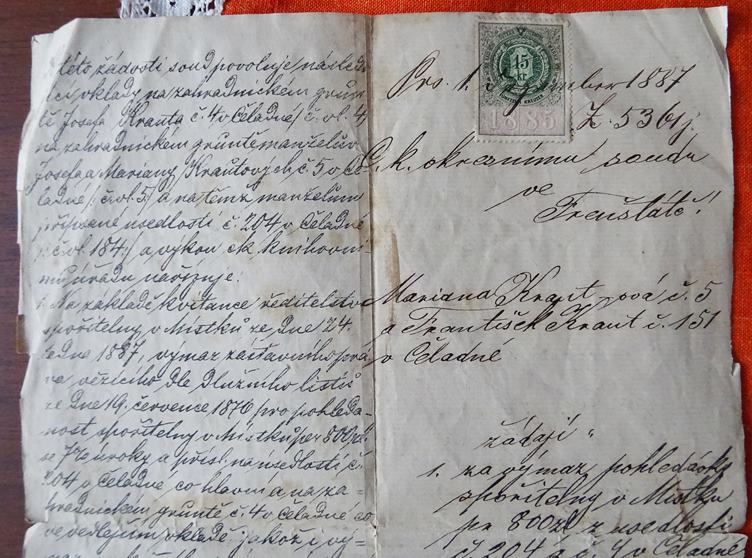 této žádosti soud povoluje násled
ící vklady na zahradnickém grun
tě Josefa Krauta č. 4 v Čeladné /: č. vl. 4
na zahradnickém gruntě manželův
Josefa a Mariany Krautových č. 5 v Če
ladné /: č. vl. 5 :/ a na témž manželům
připsané usedlosti č. 204 v Čeladné
/: č. vl. 184 :/ a výkon ck knihovní
mu úřadu nařizuje:
1. Na základě kvitance ředitelstva
spořitelny v Místku ze dne 24.
ledna 1887, výmaz zástavního prá
va vězícího dle dlužního listu
ze dne 19. července 1876 pro pohledá-
nost spořitelny v Místku per 800 zl
se 7% úroky a přísl. na usedlosti č.
204 v Čeladné co hlavní a na za-
hradnickém gruntě č. 4 v Čeladné co
ve vedlejším vkladě jakož i vý-
15
kr.
1885
Prs. 1. 1887
Z. 5361/j.
C. k. okresnímu soudu
ve
Frenštátě!
Mariana Kraut ová č. 5
a František Kraut č. 151
v Čeladné
žádají
1. za výmaz pohledávky
spořitelny v Místku
pr 800 zl z usedlosti
č. 204 a č. 4 v Čeladné